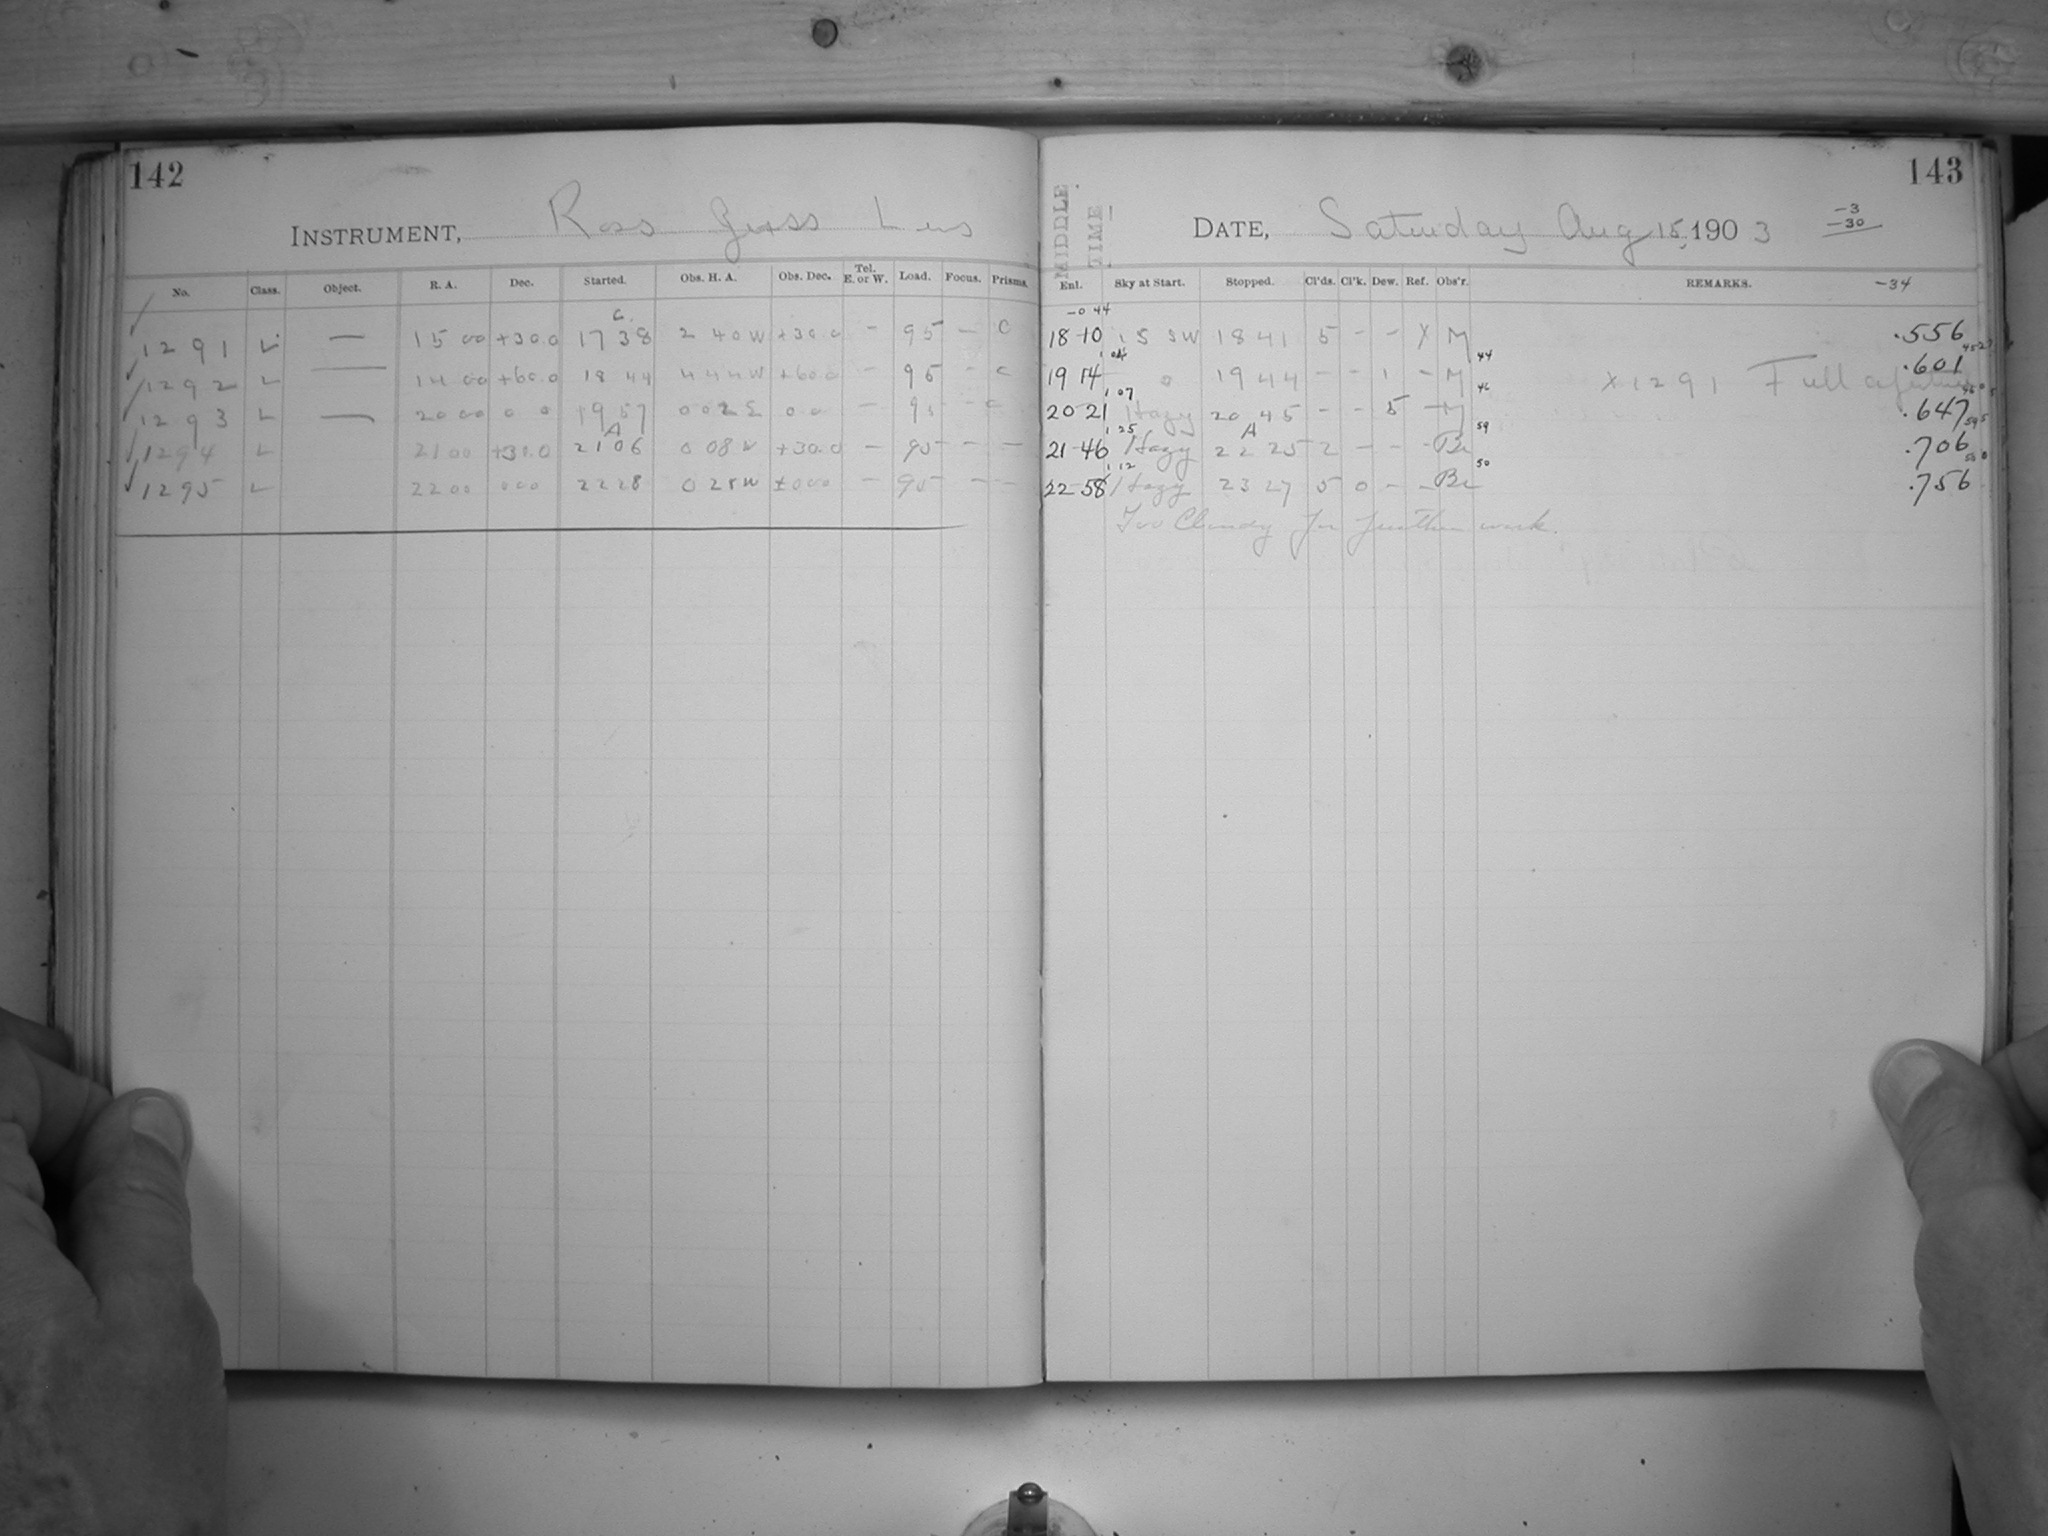 142
INSTRUMENT, Ross Lens
No. Class. Object. R. A. Dec. Started. Obs. H. A. Obs. Dec. Tel. E. or W. Load. Focus. Prisms.
C.
1291 L — 15 00 +30.0 17 38 2 40 W +30.0 — 95 — C
1292 L — 14 00 +60.0 18 44 4 44 W +60.0 — 95 — C
1293 L — 20 00 0 0 19 57 0 02 E 0 0 — 95 — C
A
1294 L 21 00 +30.0 21 06 0 08 W +30.0 — 95 — —
1295 L 22 00 000 22 28 0 28 W ±000 — 95 — —
143
MIDDLE TIME
DATE, Saturday Aug 15, 1903
-3
-30
Enl. Sky at Start. Stopped. Cl'ds. Cl'k. Dew. Ref. Obs'r. REMARKS. -34
-0 44
18 10 1 S SW 18 41 5 - - X M .556
1 04 44
19 14 0 19 44 - - 1 - M X 1291 Full .601
1 07 46
20 21 Hazy 20 45 - - 5 - M .647
1 25 A 59
21 46 Hazy 22 25 2 - - - Be .706
1 12 50
22 58 Hazy 23 27 5 0 - - Be .756
Too Cloudy for further work.